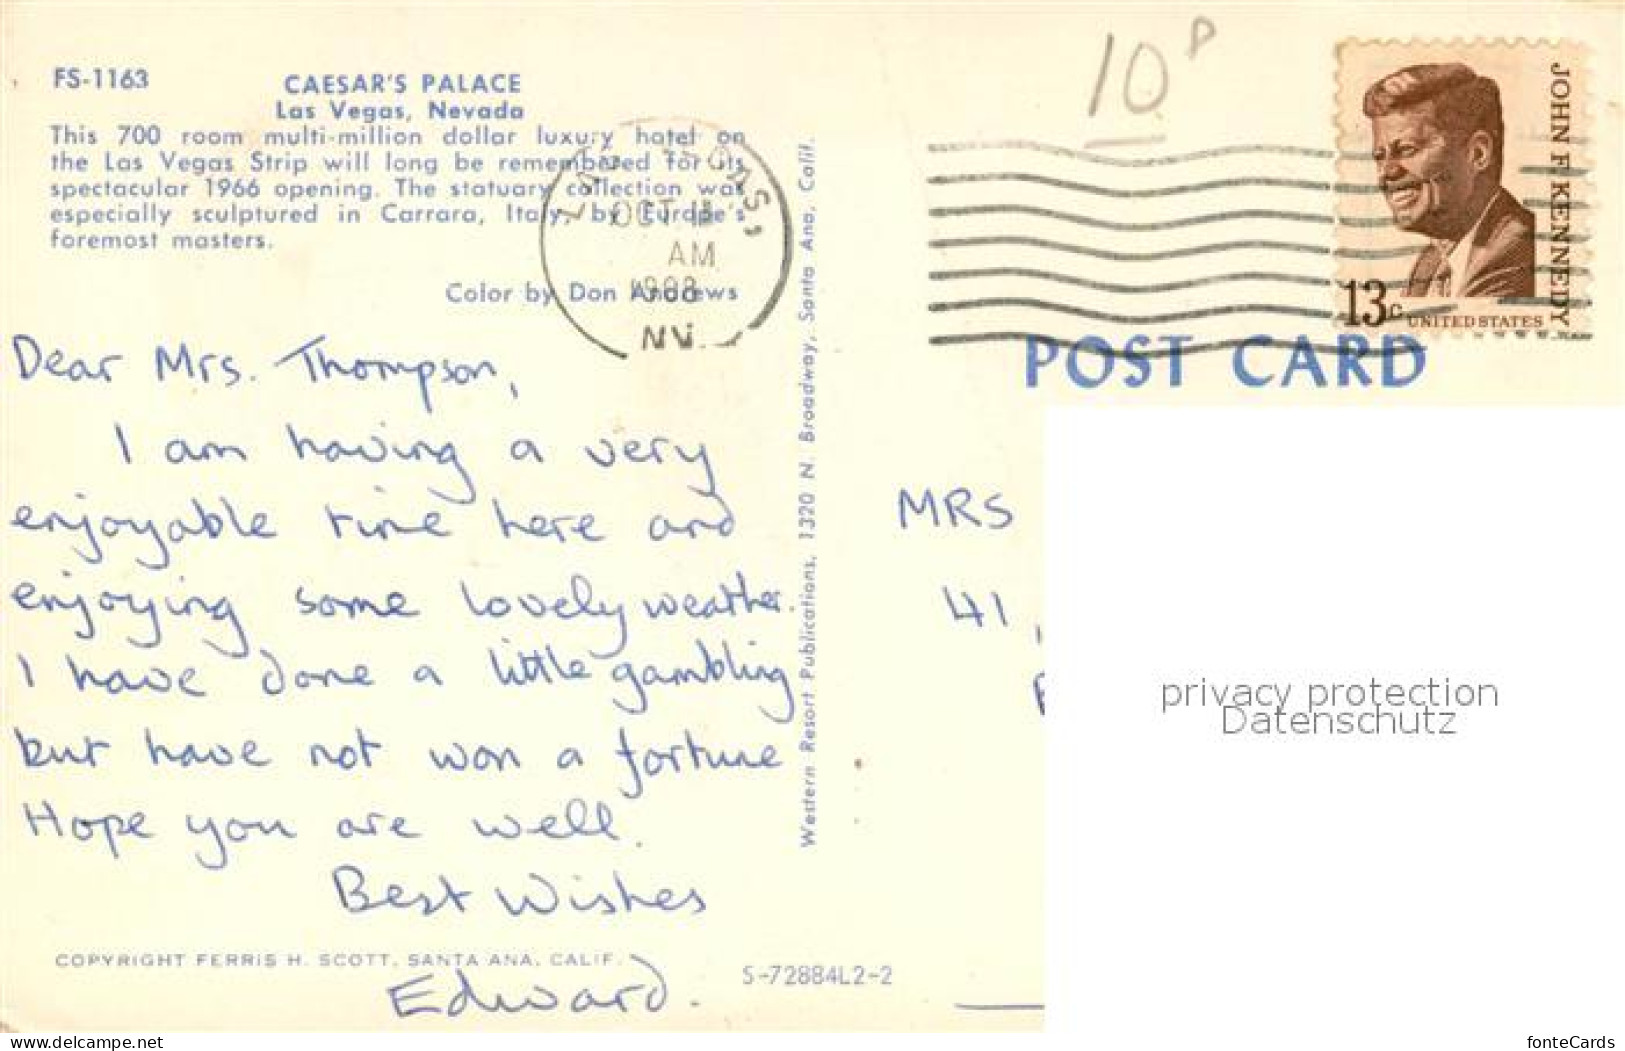 FS-1163
CAESAR'S PALACE
Las Vegas, Nevada
This 700 room multi-million dollar luxury hotel on
the Las Vegas Strip will long be remembered for its
spectacular 1966 opening. The statuary collection was
especially sculptured in Carrara, Italy, by Europe's
foremost masters.
Color by Don Andrews
OCT
AM
NV.
Dear Mrs. Thompson,
I am having a very
enjoyable time here and
enjoying some lovely weather.
I have done a little gambling
but have not won a fortune
Hope you are well.
Best Wishes
Edward.
COPYRIGHT FERRIS H. SCOTT, SANTA ANA, CALIF.
S-72884L2-2
Western Resort Publications, 1320 N. Broadway, Santa Ana, Calif.
10 P
JOHN F. KENNEDY
13c UNITED STATES
POST CARD
MRS
41
privacy protection
Datenschutz
www.delcampe.net
fonteCards